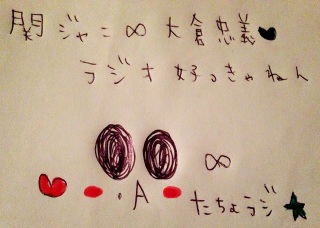 関ジャニ∞大倉忠義♥
ラジオ好っきゃねん
∞
・A
たちょラジ★